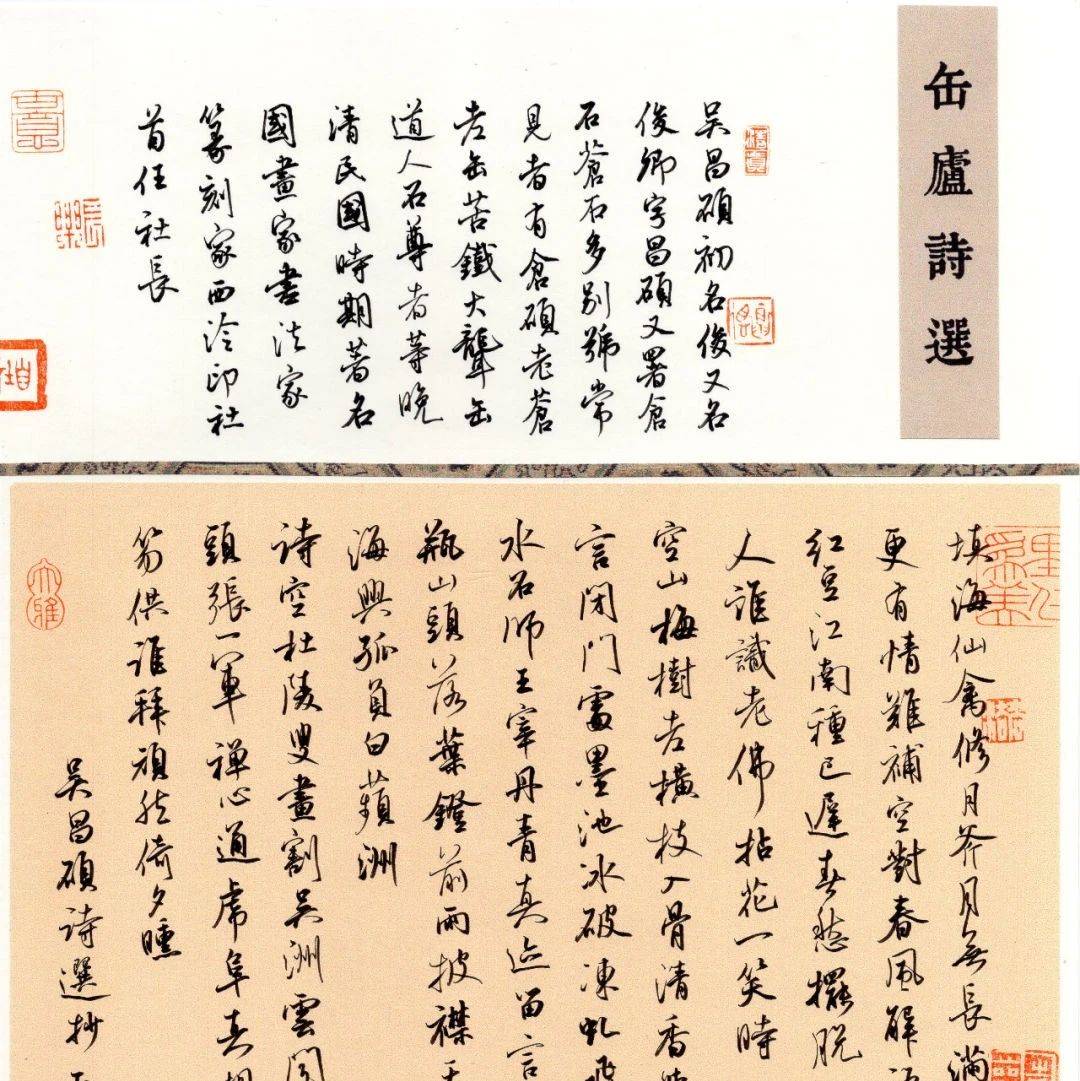 缶廬詩選
吳昌碩初名俊又名
俊卿字昌碩又署倉
石蒼石多別號常
見者有倉碩老蒼
老缶苦鐵大聾缶
道人石尊者等晚
清民國時期著名
國畫家書法家
篆刻家西泠印社
首任社長
填海仙禽修月斧月無長滿
更有情難補空對春風解
紅豆江南種已遲春愁擺脫
人誰識老佛拈花一笑時
空山梅樹老橫枝入骨清香
言閉門墨池冰破凍虬飛
水石師王宰丹青真迹留言
瓶山頭落葉鐙前雨披襟
海興孤負白蘋洲
詩空杜陵叟畫割吳洲雲
頭張一軍禪心通虎阜真
笏供誰拜頹然倚夕曛
吳昌碩詩選抄